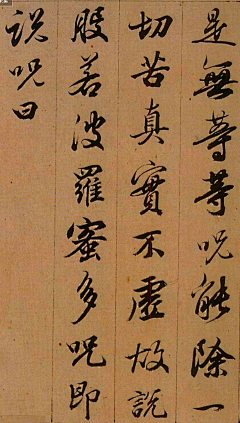 是無等等咒能除一
切苦真實不虛故說
般若波羅蜜多咒即
說咒曰